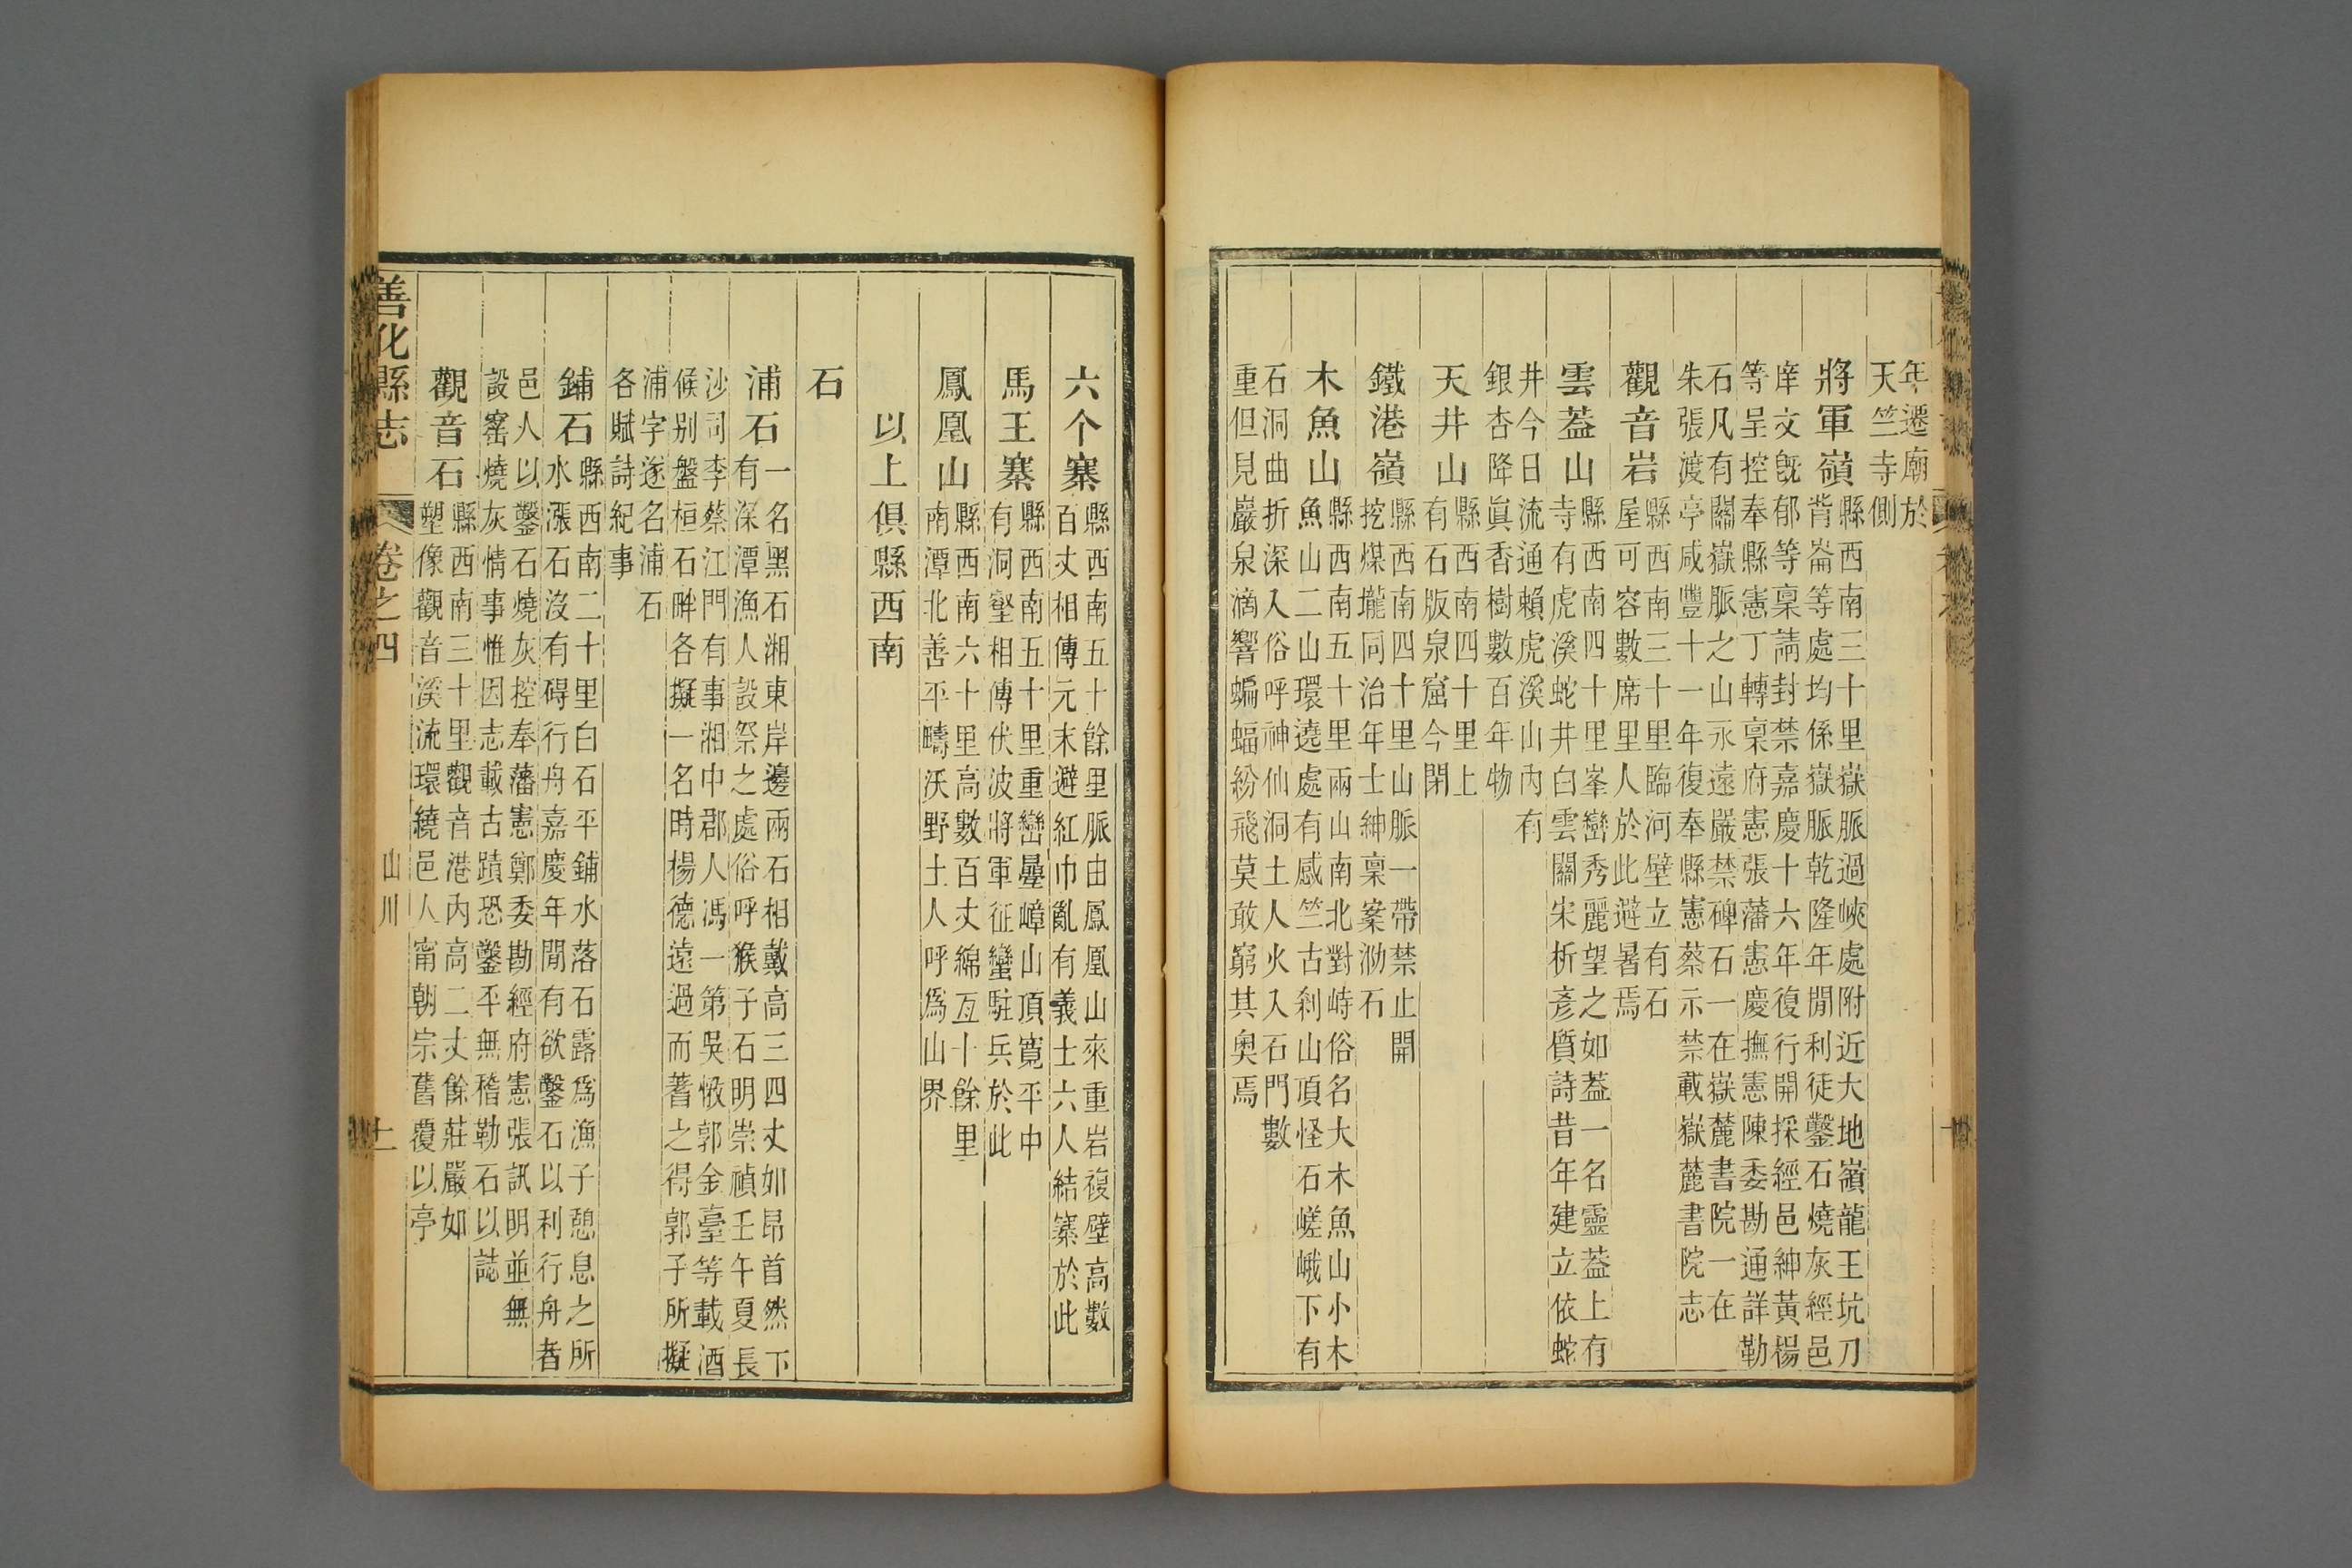 年遷廟於
天竺寺側
將軍嶺縣西南三十里嶽脈過峽處附近大地嶺龍王坑刀
背崙等處均係嶽脈乾隆年閒利徒鑿石燒灰經邑
庠文旣郁等稟請封禁嘉慶十六年復行開採經邑紳黃楊
等呈控奉縣憲丁轉稟府憲張藩憲慶撫憲陳委勘通詳勒
石凡有關嶽脈之山永遠嚴禁碑石一在嶽麓書院一在
朱張渡亭咸豐十一年復奉縣憲蔡示禁載嶽麓書院志
觀音岩縣西南三十里臨河壁立有石
屋可容數席里人於此避暑焉
雲葢山縣西南四十里峯巒秀麗望之如葢一名靈葢上有
寺有虎溪蛇井白雲關宋析彥質詩昔年建立依蛇
井今日流通賴虎溪山內有
銀杏降眞香樹數百年物
天井山縣西南四十里上
有石版泉窟今閉
鐵港嶺縣西南四十里山脈一帶禁止開
挖煤壠同治年士紳稟案泐石
木魚山縣西南五十里兩山南北對峙俗名大木魚山小木
魚山二山環遶處有感竺古刹山頂怪石嵯峨下有
石洞曲折深入俗呼神仙洞土人火入石門數
重但見巖泉滴響蝙蝠紛飛莫敢窮其奧焉
六个寨縣西南五十餘里脈由鳳凰山來重岩複壁高數
百丈相傳元末避紅巾亂有義士六人結寨於此
馬王寨縣西南五十里重巒曡嶂山頂寬平中
有洞壑相傳伏波將軍征蠻駐兵於此
鳳凰山縣西南六十里高數百丈綿亙十餘里
南潭北善平疇沃野土人呼爲山界
以上俱縣西南
石
浦石一名黑石湘東岸邊兩石相戴高三四丈如昂首然下
有深潭漁人設祭之處俗呼猴子石明崇禎壬午夏長
沙司李蔡江門有事湘中郡人馮一第吳愀郭金臺等載酒
候别盤桓石畔各擬一名時楊德遠過而蓍之得郭子所擬
浦字遂名浦石
各賦詩紀事
鋪石縣西南二十里白石平鋪水落石露爲漁子憩息之所
水漲石沒有碍行舟嘉慶年閒有欲鑿石以利行舟者
邑人以鑿石燒灰控奉藩憲鄭委勘經府憲張訊明並無
設窰燒灰情事惟因志載古蹟恐鑿平無稽勒石以誌
觀音石縣西南三十里觀音港內高二丈餘莊嚴如
塑像觀音溪流環繞邑人甯朝宗舊覆以亭
善化縣志
卷之四
山川
十一